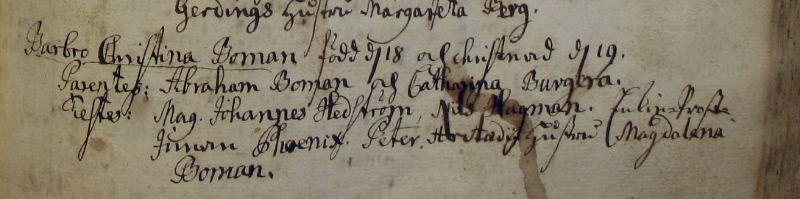 Gerdings Hustru Margareta Berg.
Barbro Christina Boman född d 18 och christnad d 19.
Parentes: Abraham Boman och Catharina Burgera.
Testes: Mag. Johannes Hedström, Nils Hagman.
Phoenix. Peter Hustru Magdalena
Boman.